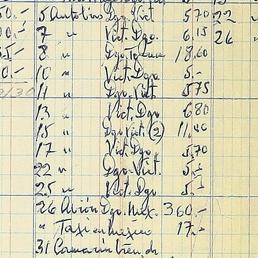 5 Autobús Dgo. Vict 5 70 22 "
7 " Vict. Dgo. 6.15 26 "
8 " Dgo. 18.60
10 " Vict. Dgo 5.-
11 " Dgo. Vict 5 75
13 " Vict. Dgo 6 80
15 " Dgo Vict. (2) 11,40
17 " Vict. Dgo 5,70
22 " Dgo. Vict. 5.-
25 " Vict. Dgo 5.-
26 Avión Dgo. Mex. 360.-
" Taxi en 17.-
31 Camarín tren de